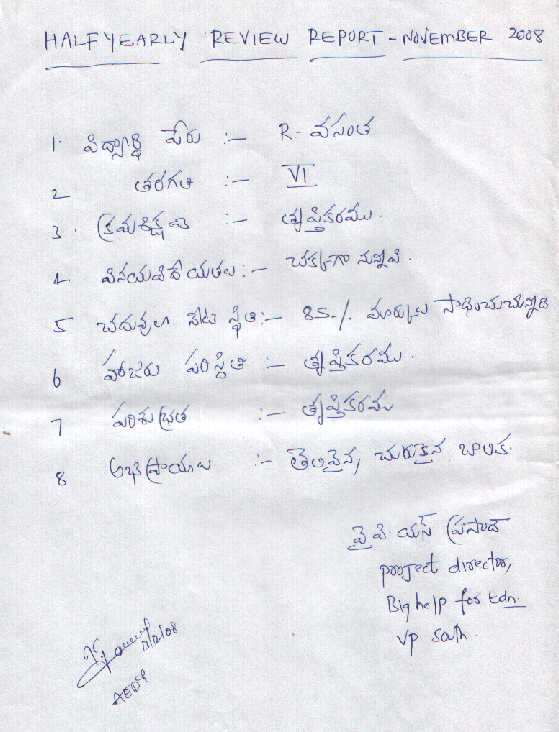 HALF YEARLY REVIEW REPORT - NOVEMBER 2008
1. విద్యార్థి పేరు :- R. వసంత
2 తరగతి :- VI
3. క్రమశిక్షణ :- తృప్తికరము.
4. వినయవిధేయతలు :- చక్కగా నున్నవి.
5 చదువులో నేటి స్థితి :- 85% మార్కులు సాధించుచున్నది
6 హాజరు పరిస్థితి :- తృప్తికరము.
7 పరిశుభ్రత :- తృప్తికరము
8 అభిప్రాయలు :- తెలివైన, చురుకైన బాలిక.
వై పి యస్ ప్రసాద్
project director,
Big help for Edn.
Vp south.
AEO59